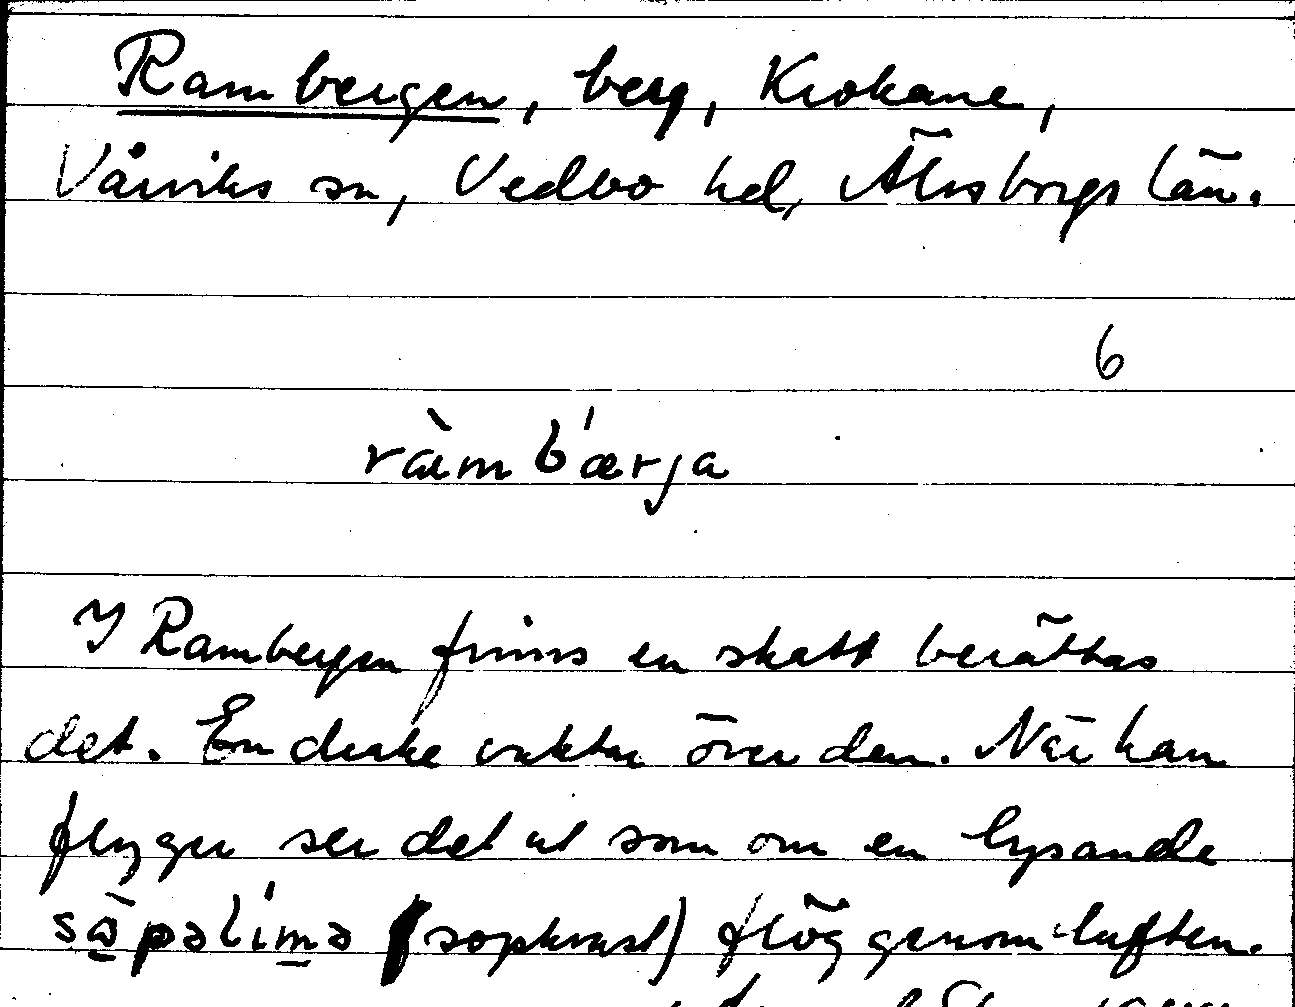 Rambergen, berg, Krokane,
Vårviks sn, Vedbo hd, Älvsborgs län.
6
I Rambergen finns en skatt berättas
det. En drake vaktar över den. När han
flyger ser det ut som om en lysande
(sopkvast) flög genom luften.